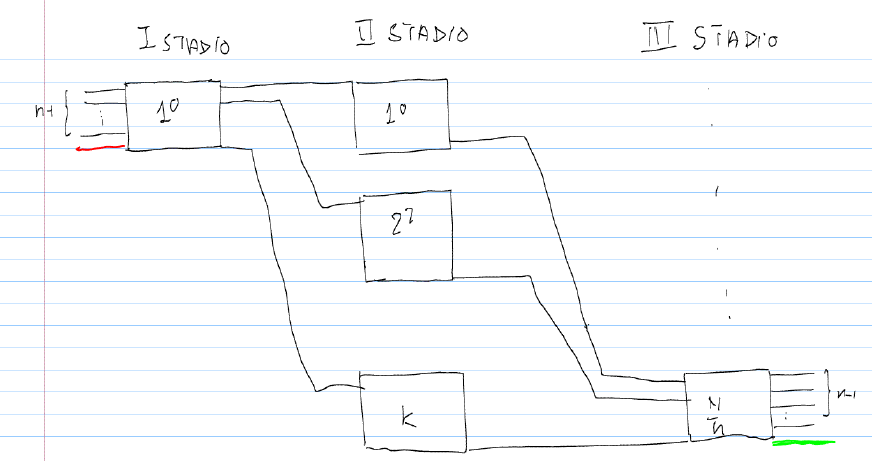 I STADIO II STADIO III STADIO
n-1 1° 1°
2°
K N/n n-1